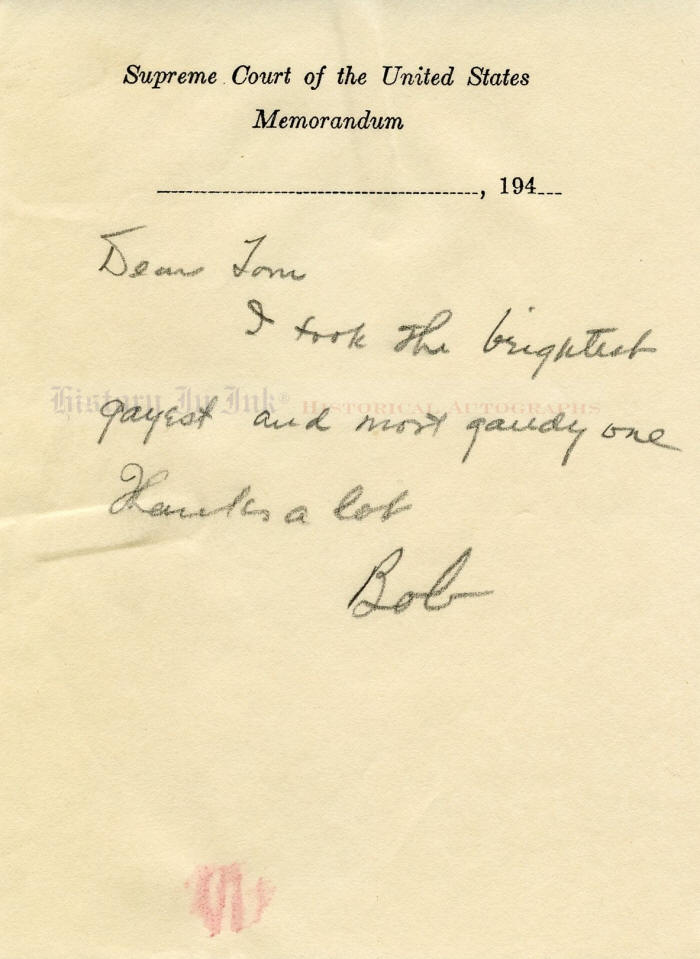 Supreme Court of the United States
Memorandum
, 194
Dear Tom
I took the brightest
History In Ink® Historical Autographs
gayest and most gaudy one
Thanks a lot
Bob